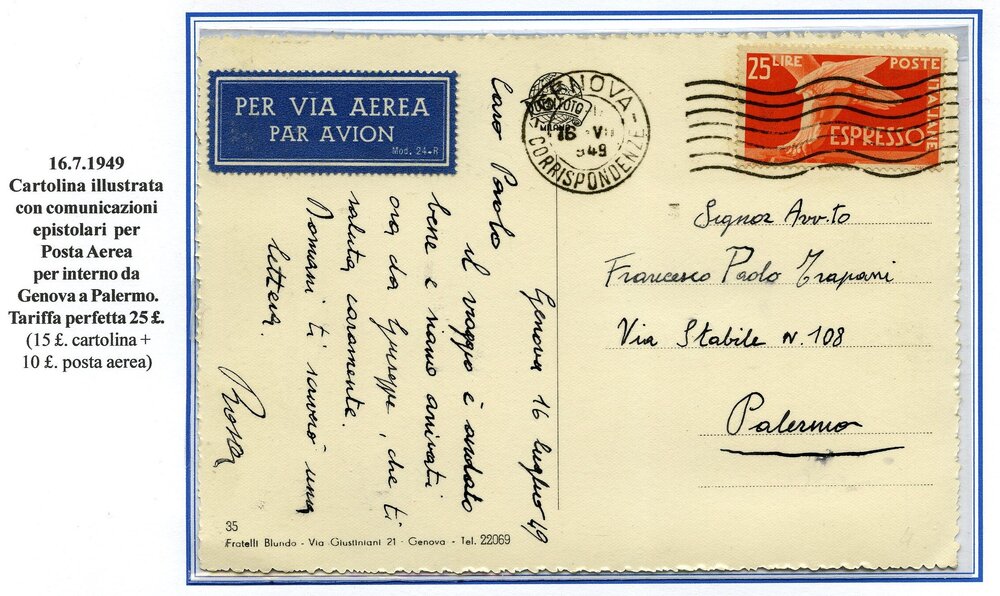 16.7.1949
Cartolina illustrata
con comunicazioni
epistolari per
Posta Aerea
per interno da
Genova a Palermo.
Tariffa perfetta 25 £.
(15 £. cartolina +
10 £. posta aerea)
PER VIA AEREA
PAR AVION
Mod. 24-R
GENOVA
CORRISPONDENZE
16 VII
949
25 LIRE
POSTE
ITALIANE
ESPRESSO
Genova 16 luglio 49
Caro Paolo
il viaggio è andato
bene e siamo arrivati
ora da Giuseppe, che ti
saluta caramente.
Domani ti scriverò una
lettera.
Signor Avv.to
Francesco Paolo Trapani
Via Stabile N. 108
Palermo
35
Fratelli Blundo - Via Giustiniani 21 - Genova - Tel. 22069